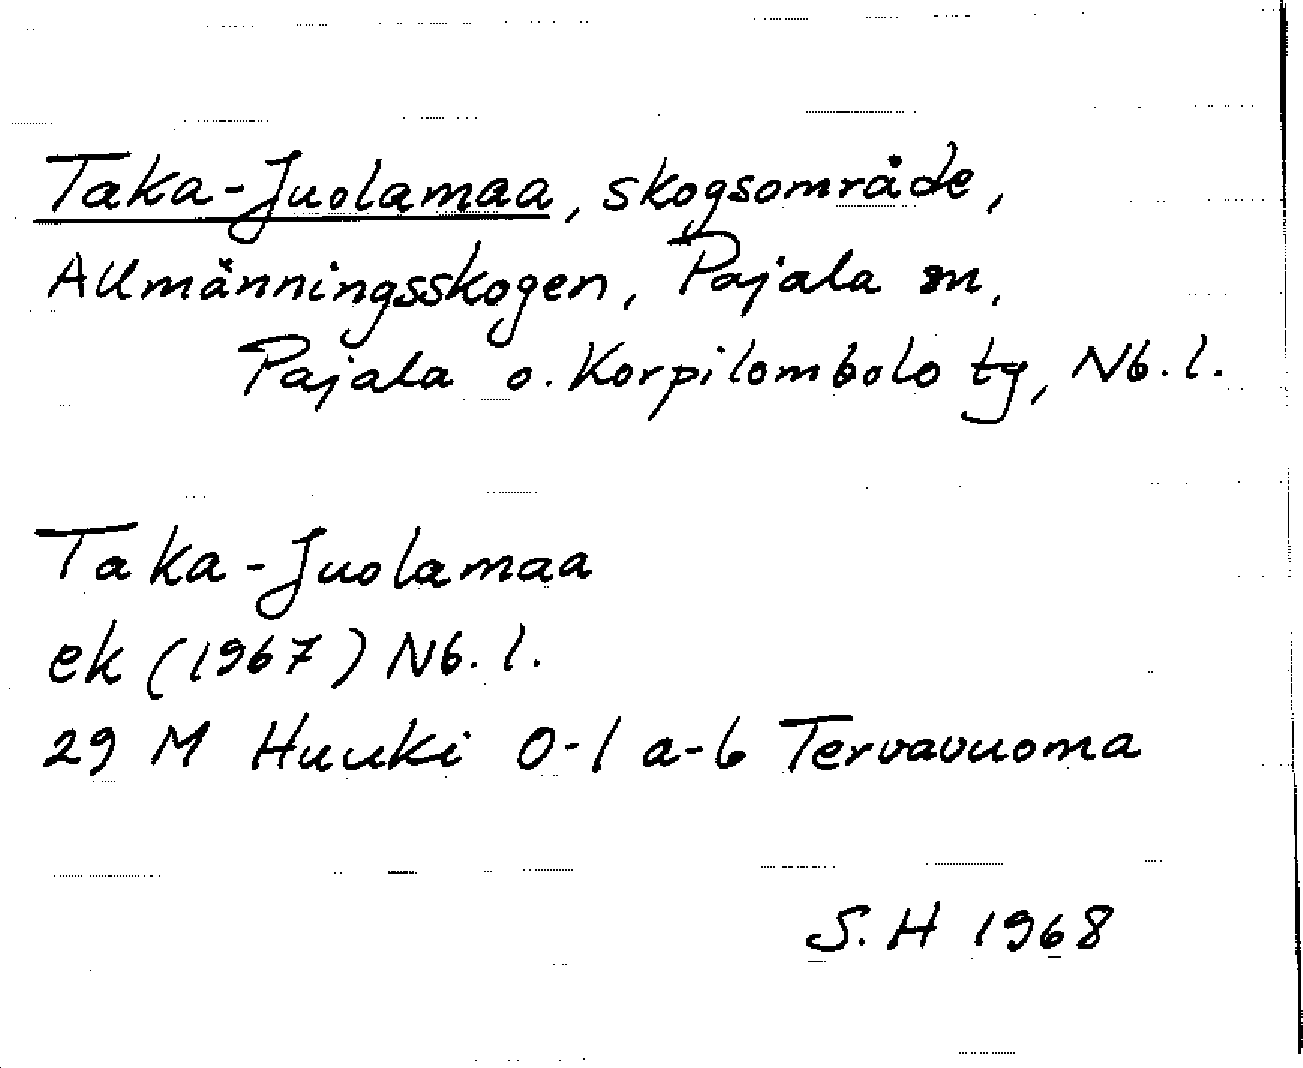 Taka-Juolamaa, skogsområde,
Allmänningsskogen, Pajala sn,
Pajala o. Korpilombolo tg, Nb. l.
Taka-Juolamaa
ek (1967) Nb. l.
29 M Huuki 0-1 a-b Tervavuoma
S. H 1968